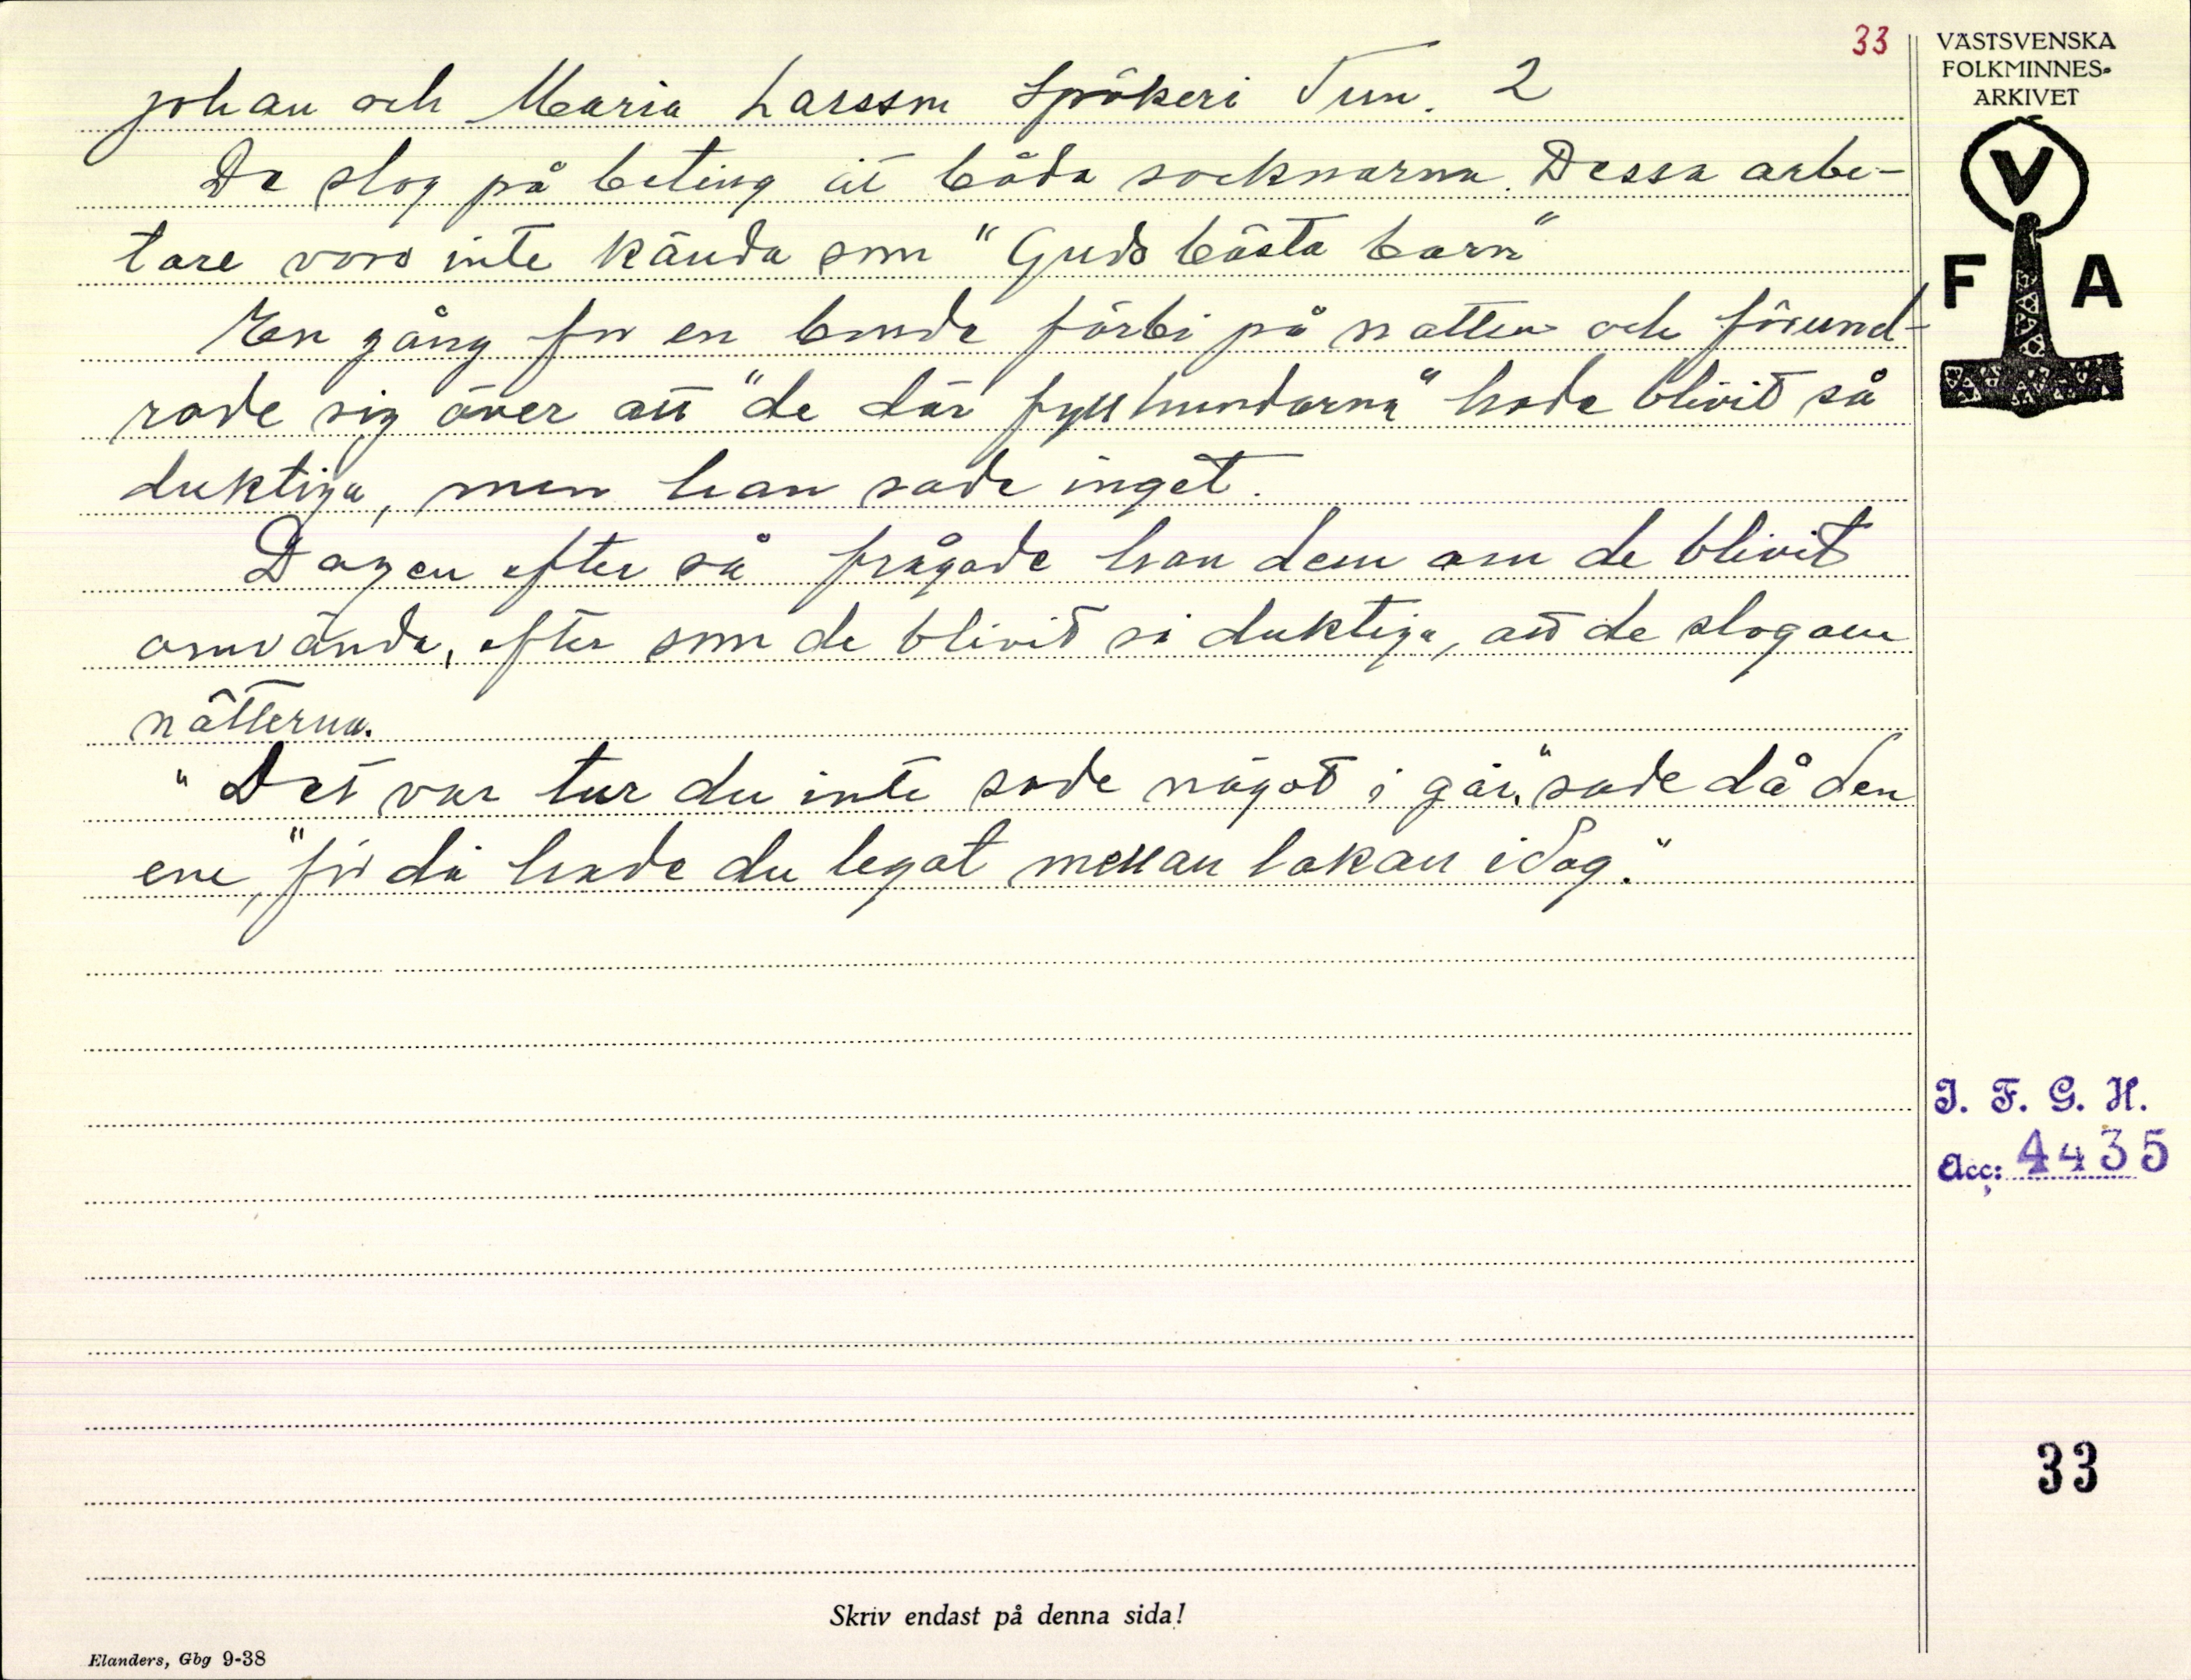 33
Johan och Maria Larsson Spökeri Tun. 2
De slog på beting åt båda socknarna. Dessa arbe-
tare voro inte kända som "Guds bästa barn"
En gång for en bonde förbi på natten och förund-
rade sig över att "de där fyllhundarna" hade blivit så
duktiga, men han sade inget.
Dagen efter så frågade han dem om de blivit
omvända, efter som de blivit så duktiga, att de slog om
nätterna.
"Det var tur du inte sade något i går," sade då den
ene, "för då hade du legat mellan lakan idag."
VÄSTSVENSKA
FOLKMINNES-
ARKIVET
V
F A
I. F. G. H.
Acc: 4435
33
Skriv endast på denna sida!
Elanders, Gbg 9-38